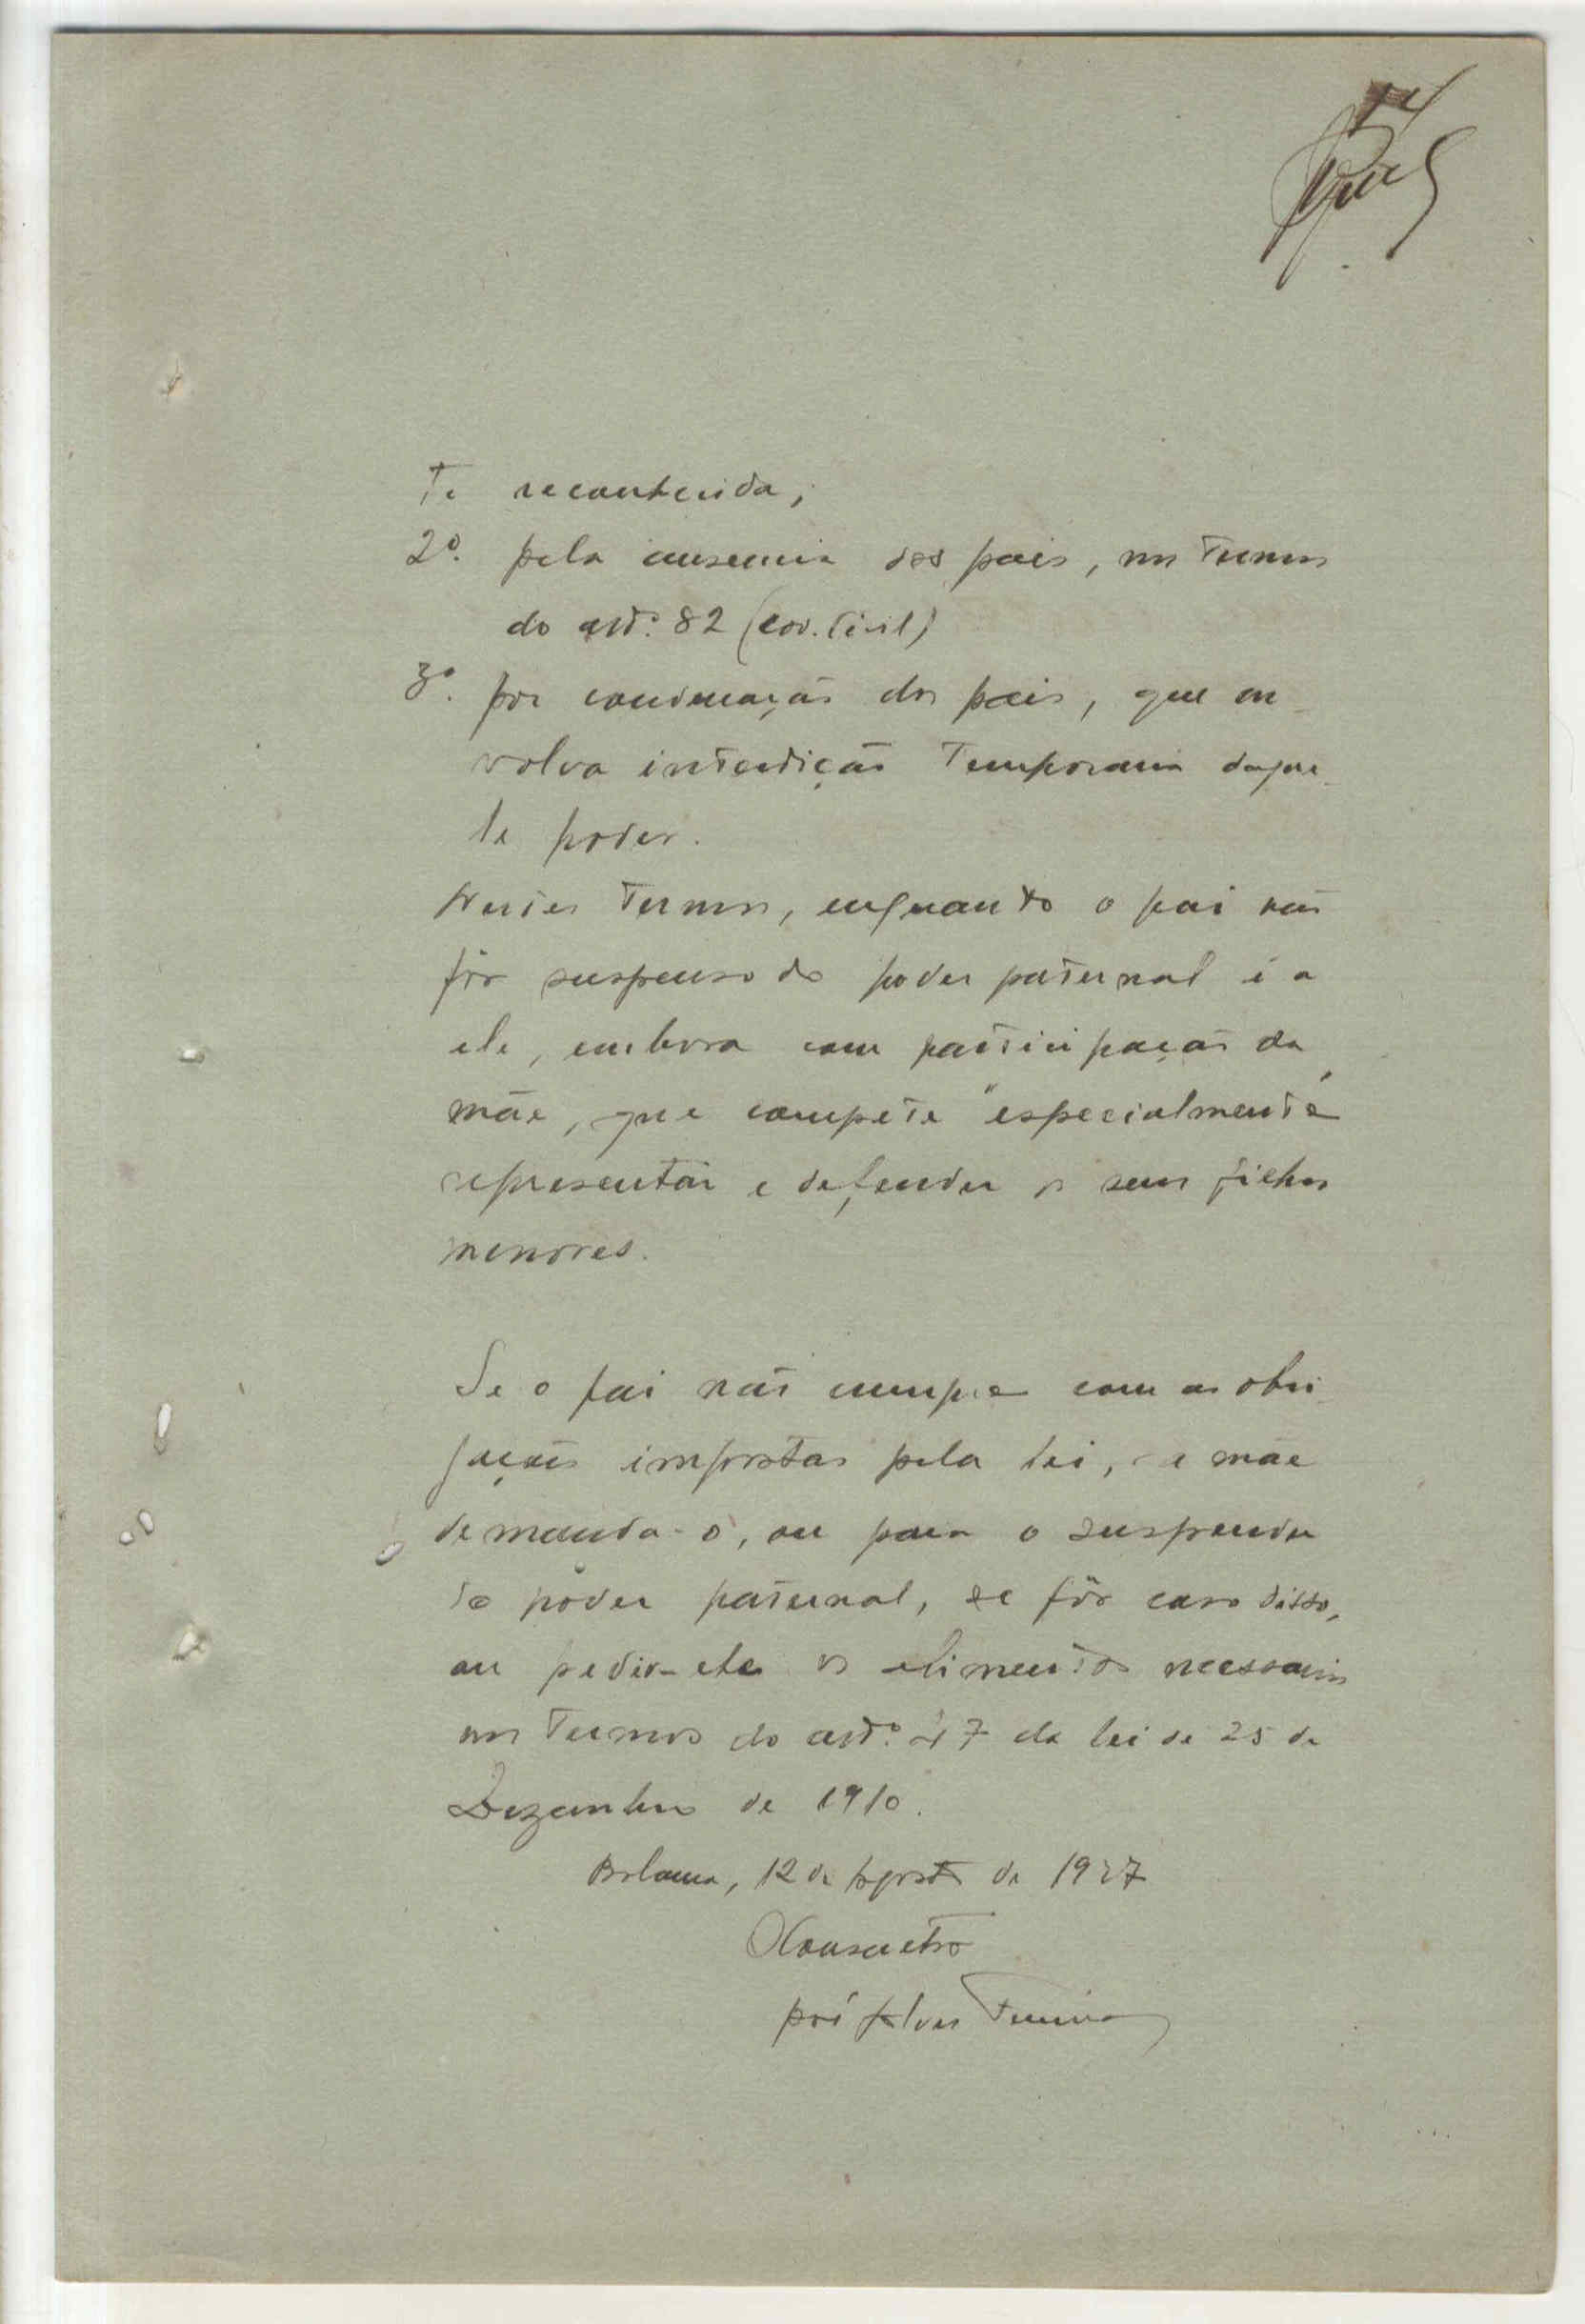 te reconhecida;
2º. pela ausencia dos pais, nos termos
do artº. 82 (Cod. Civil)
3º. por condenação dos pais, que en-
volva interdição temporaria daque-
le poder.
Nestes termos, enquanto o pai não
fôr suspenso do poder paternal é a
ele, embora com participação da
mãe, que compete "especialmente"
representar e defender os seus filhos
menores.
Se o pai não cumpre com as obri-
gações impostas pela lei, a mãe
demanda-o, ou para o suspender
do poder paternal, se fôr caso disso,
ou pedir-lhe os alimentos necessarios
nos termos do artº. 47 da lei de 25 de
Dezembro de 1910.
Bolama, 12 de Agosto de 1927
José Alves Ferreira